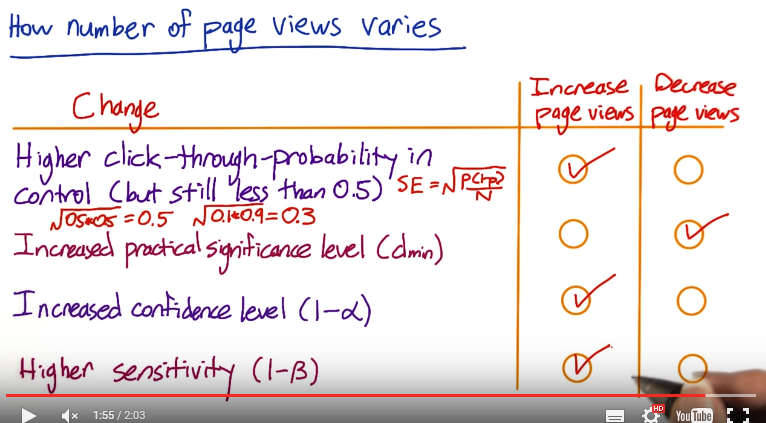 How number of page views varies
Change
Increase page views
Decrease page views
Higher click-through-probability in
control (but still less than 0.5) SE = √P(1-p)/N
√0.5*0.5 = 0.5 √0.1*0.9 = 0.3
Increased practical significance level (dmin)
Increased confidence level (1-α)
Higher sensitivity (1-β)
1:55 / 2:03
HD
YouTube